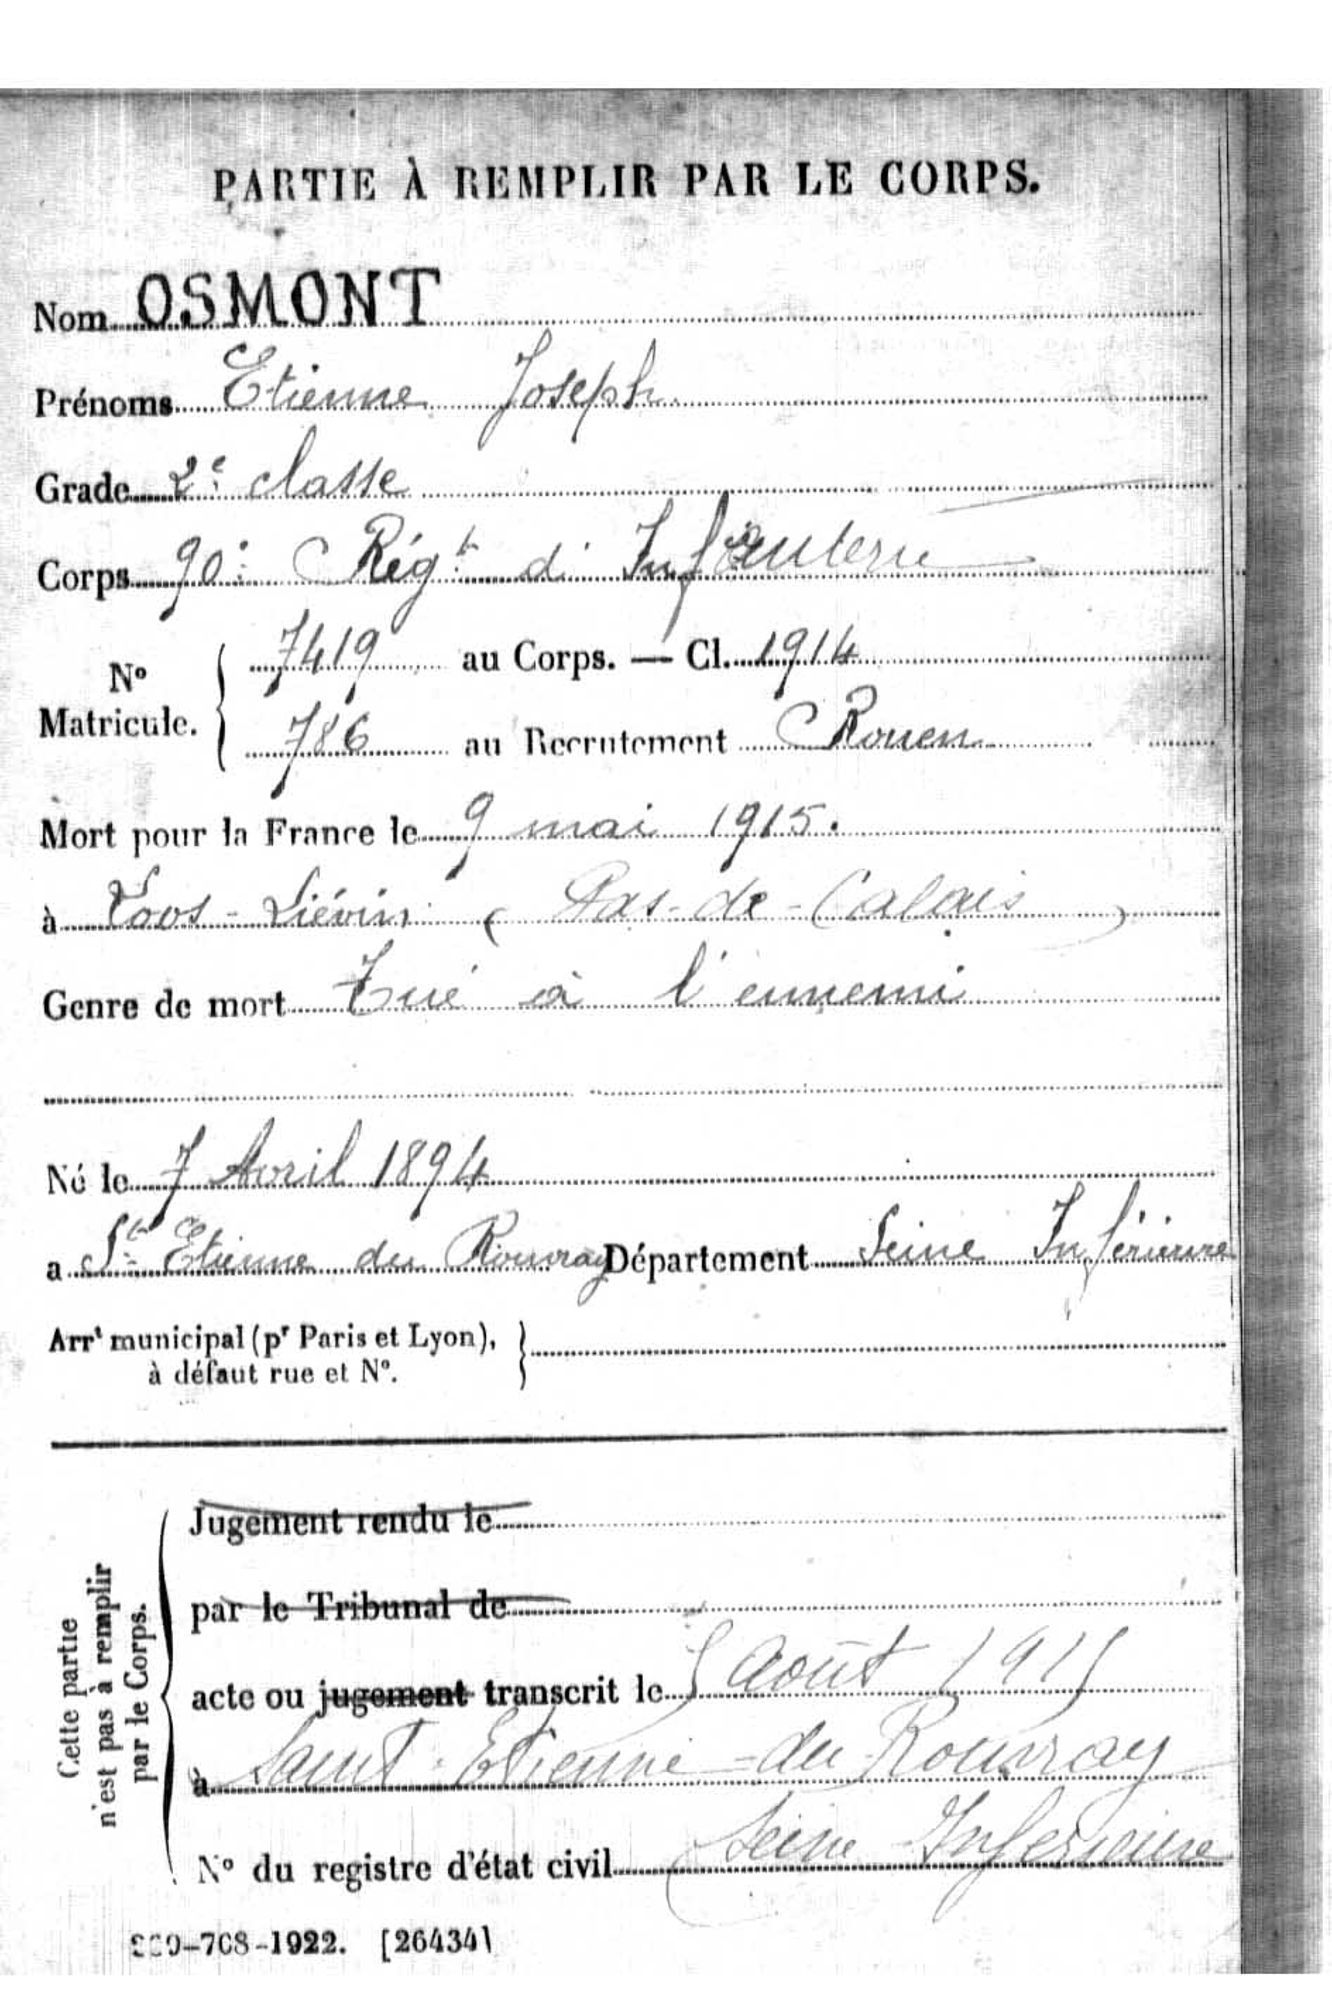 PARTIE À REMPLIR PAR LE CORPS.
Nom OSMONT
Prénoms Etienne Joseph
Grade 2e classe
Corps 90e Régt d'Infanterie
No Matricule. { 7419 au Corps. — Cl. 1914
786 au Recrutement Rouen
Mort pour la France le 9 mai 1915.
à Loos-Liévin (Pas-de-Calais)
Genre de mort Tué à l'ennemi
Né le 7 Avril 1894
a St Etienne du Rouvray Département Seine Inférieure
Arrt municipal (pr Paris et Lyon), }
à défaut rue et No.
Cette partie
n'est pas à remplir
par le Corps.
Jugement rendu le
par le Tribunal de
acte ou jugement transcrit le 5 Août 1915
à Saint-Etienne-du Rouvray
No du registre d'état civil (Seine Inferieure
-708-1922. [26434]